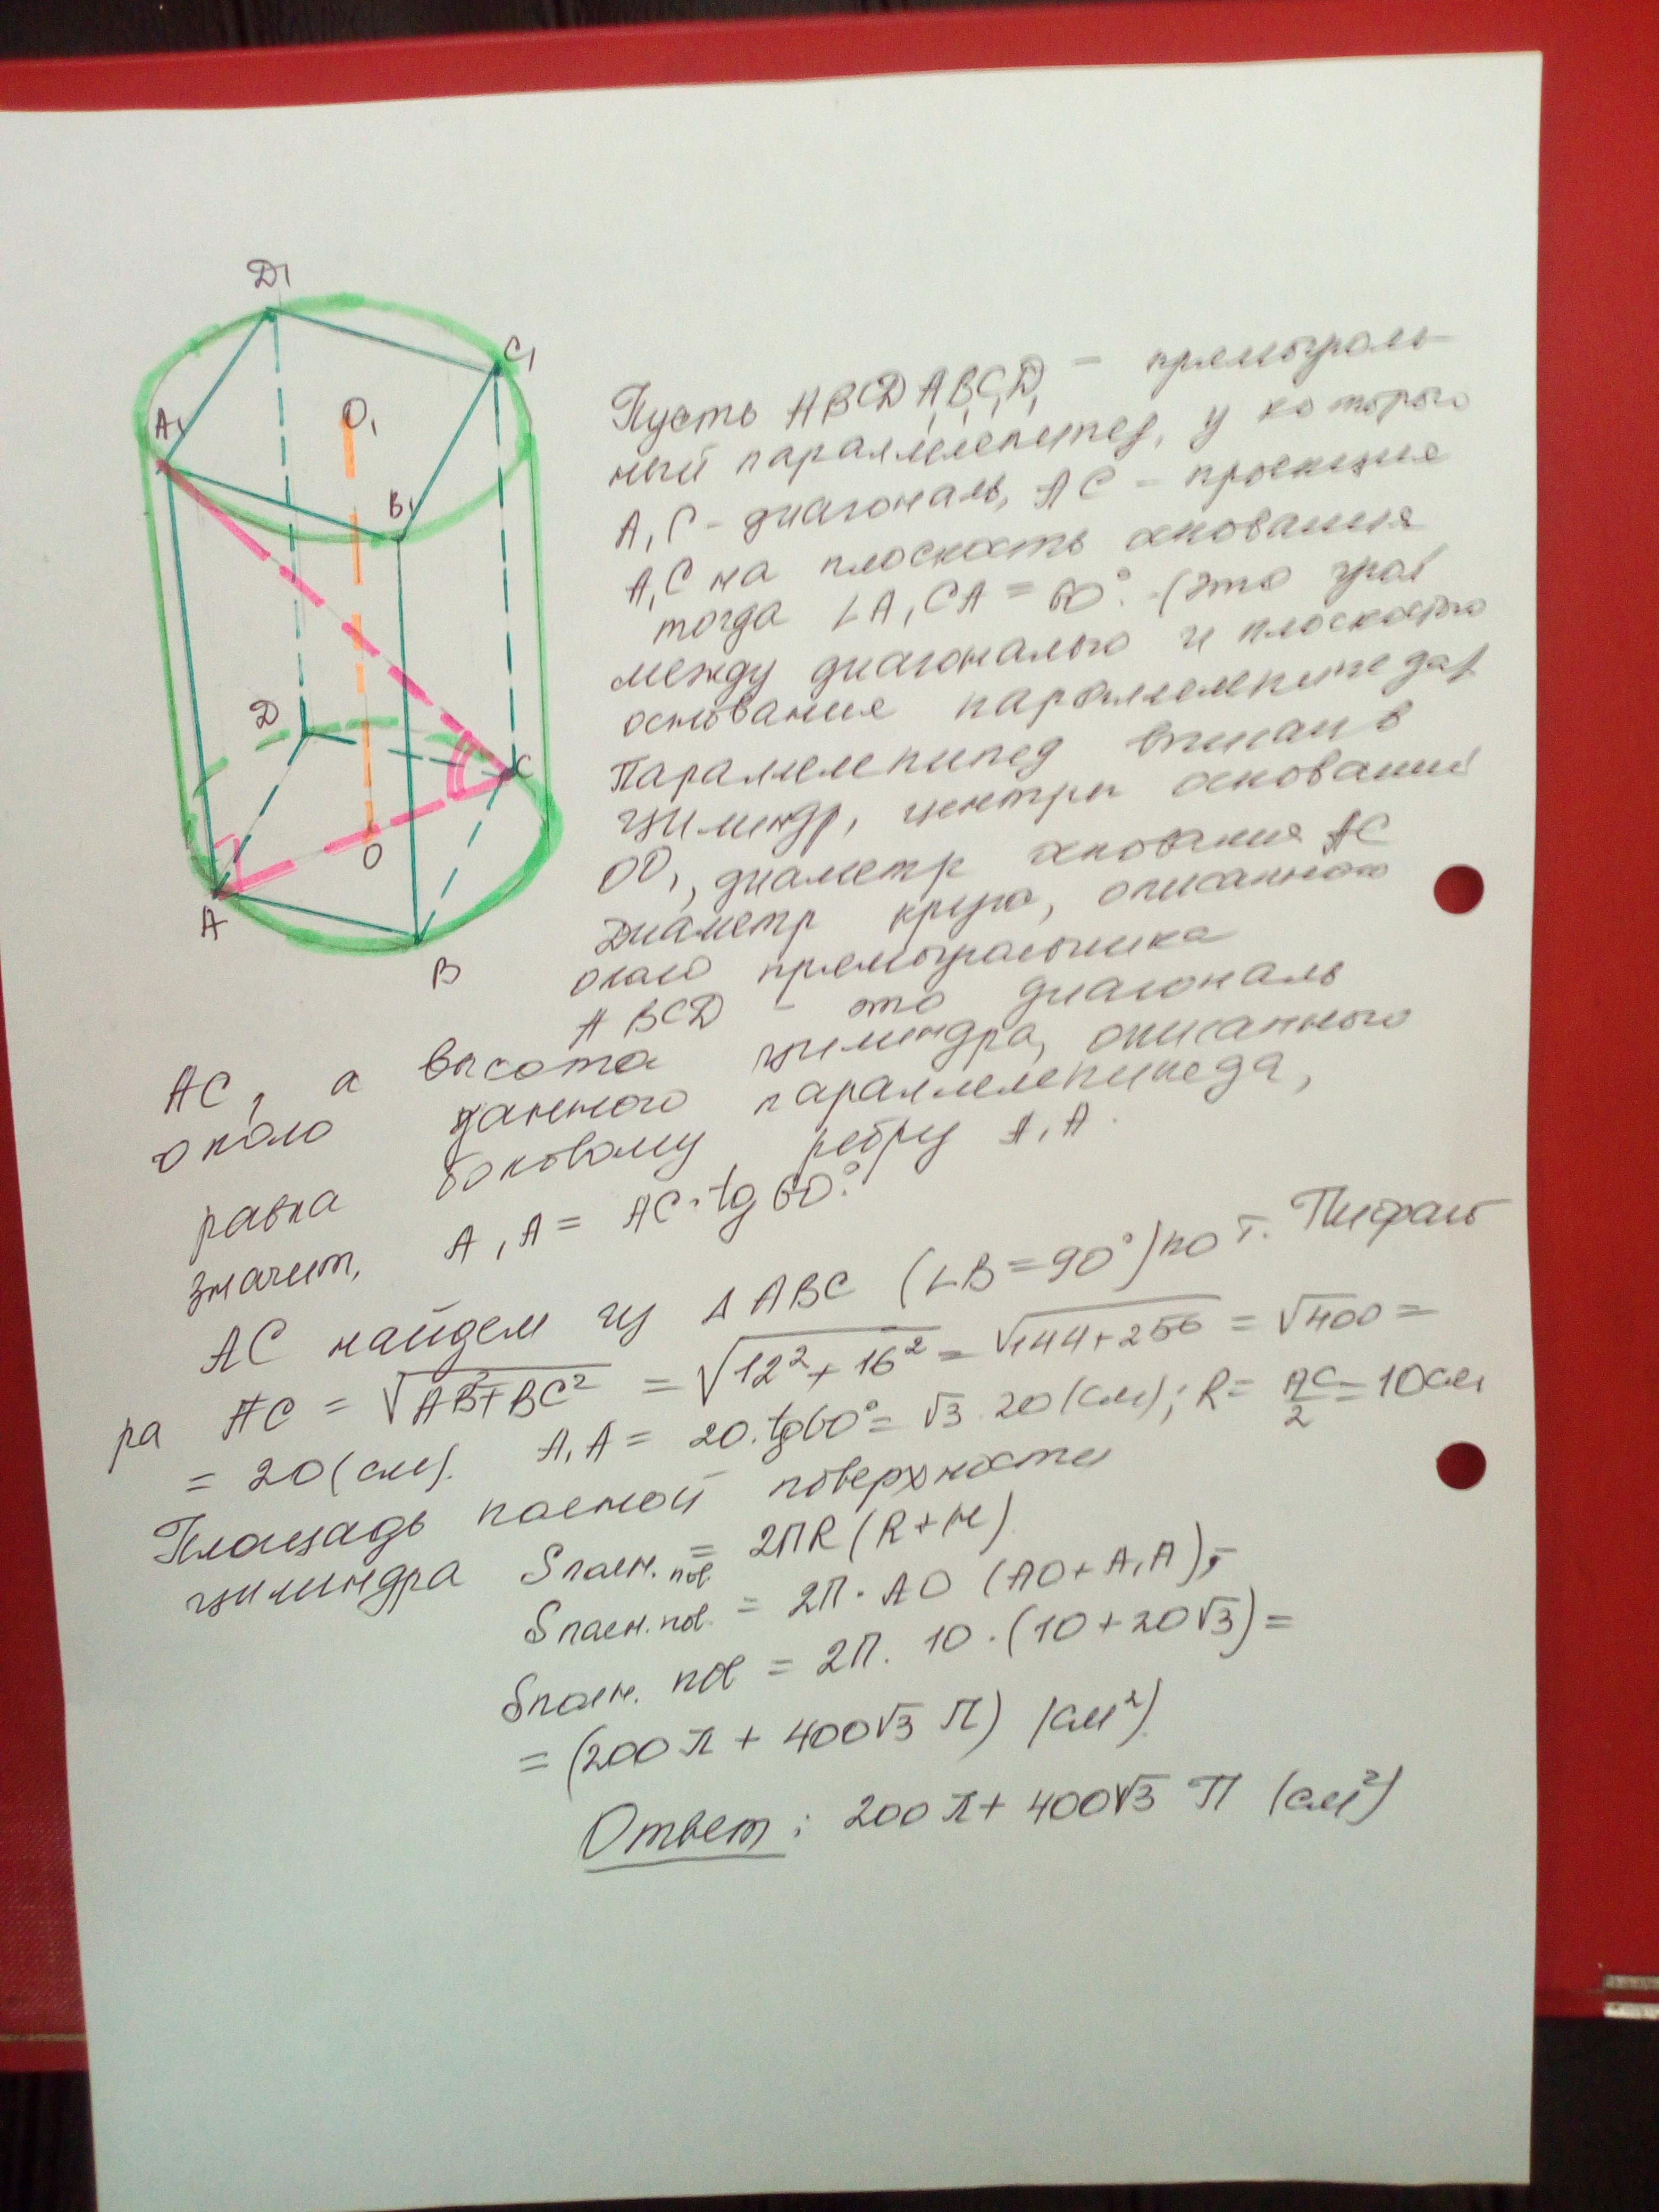 Д1
C1
A1
O1
B1
Д
C
O
A
B
Пусть ABCДA1B1C1Д1 – прямоуголь
ный параллелепипед, у которого
A1C – диагональ, AC – проекция
A1C на плоскость основания
тогда ∠A1CA = 60°. (это угол
между диагональю и плоскостью
основания параллелепипеда)
Параллелепипед вписан в
цилиндр, центры оснований
OO1, диаметр основания AC
Диаметр круга, описанного
около прямоугольника
ABCД – это диагональ
AC, а высота цилиндра, описанного
около данного параллелепипеда,
равна боковому ребру A1A.
значит, A1A = AC·tg60°.
AC найдем из ΔABC (∠B=90°) по т. Пифаго
ра AC = √AB²+BC² = √12²+16² = √144+256 = √400 =
= 20(см). A1A = 20·tg60° = √3·20(см); R = AC/2 = 10см
Площадь полной поверхности
цилиндра Sполн. пов. = 2ПR(R+H)
Sполн. пов. = 2П·AO (AO+A1A);
Sполн. пов = 2П·10·(10+20√3)=
= (200π + 400√3 П) (см²)
Ответ: 200π + 400√3 П (см²)